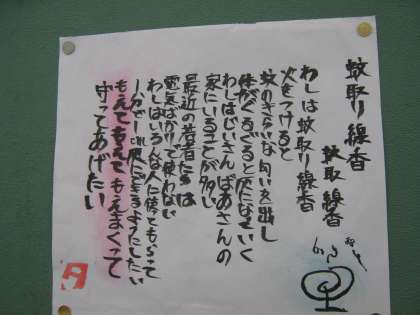 蚊取り線香
蚊取 線香
わしは蚊取り線香
火をつけると
蚊のきらいな匂いを出し
体がぐるぐると灰になっていく
わしはじいさんばあさんの
家にいることが多い
最近の若者たちは
電気ばかりで使わない
わしはいろんな人に使ってもらって
もえてもえてもえまくって
守ってあげたい